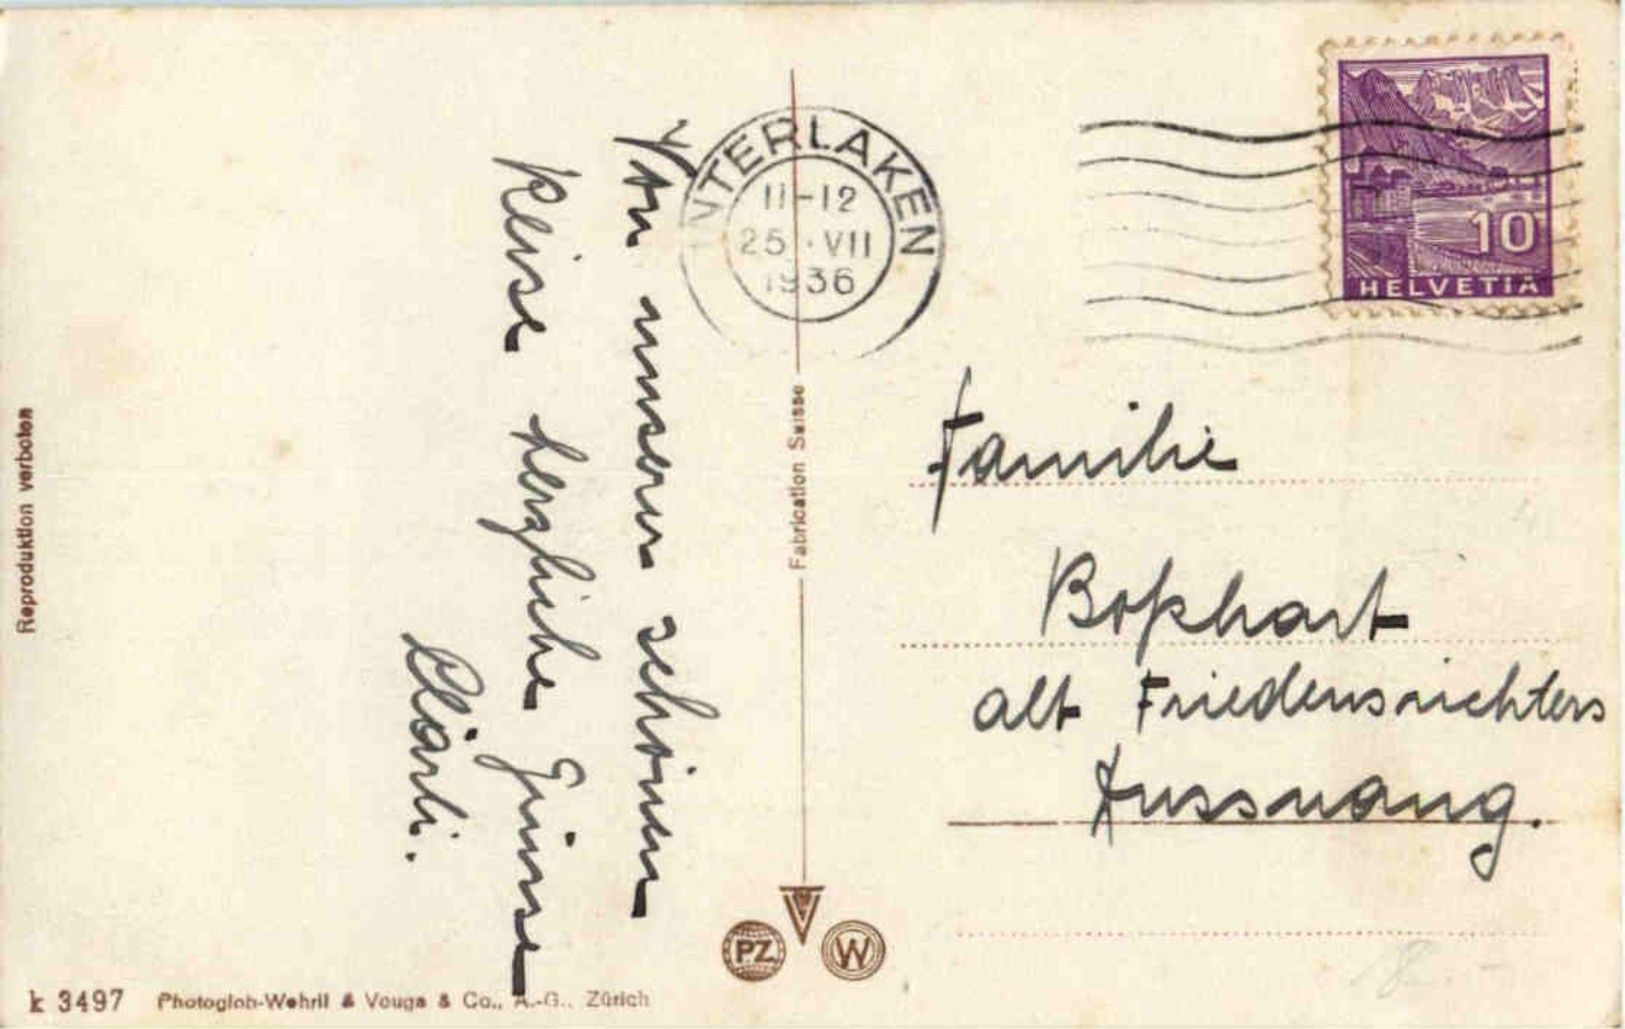 Von unserer schönen
Reise herzliche Grüsse
Klärli.
INTERLAKEN
11-12
25.VII
1936
10
HELVETIA
Familie
Boßhart
alt Friedensrichters
Dussnang.
Fabrication Suisse
Reproduktion verboten
PZ
V
W
k 3497 Photoglob-Wehrli & Vouga & Co., A.-G., Zürich